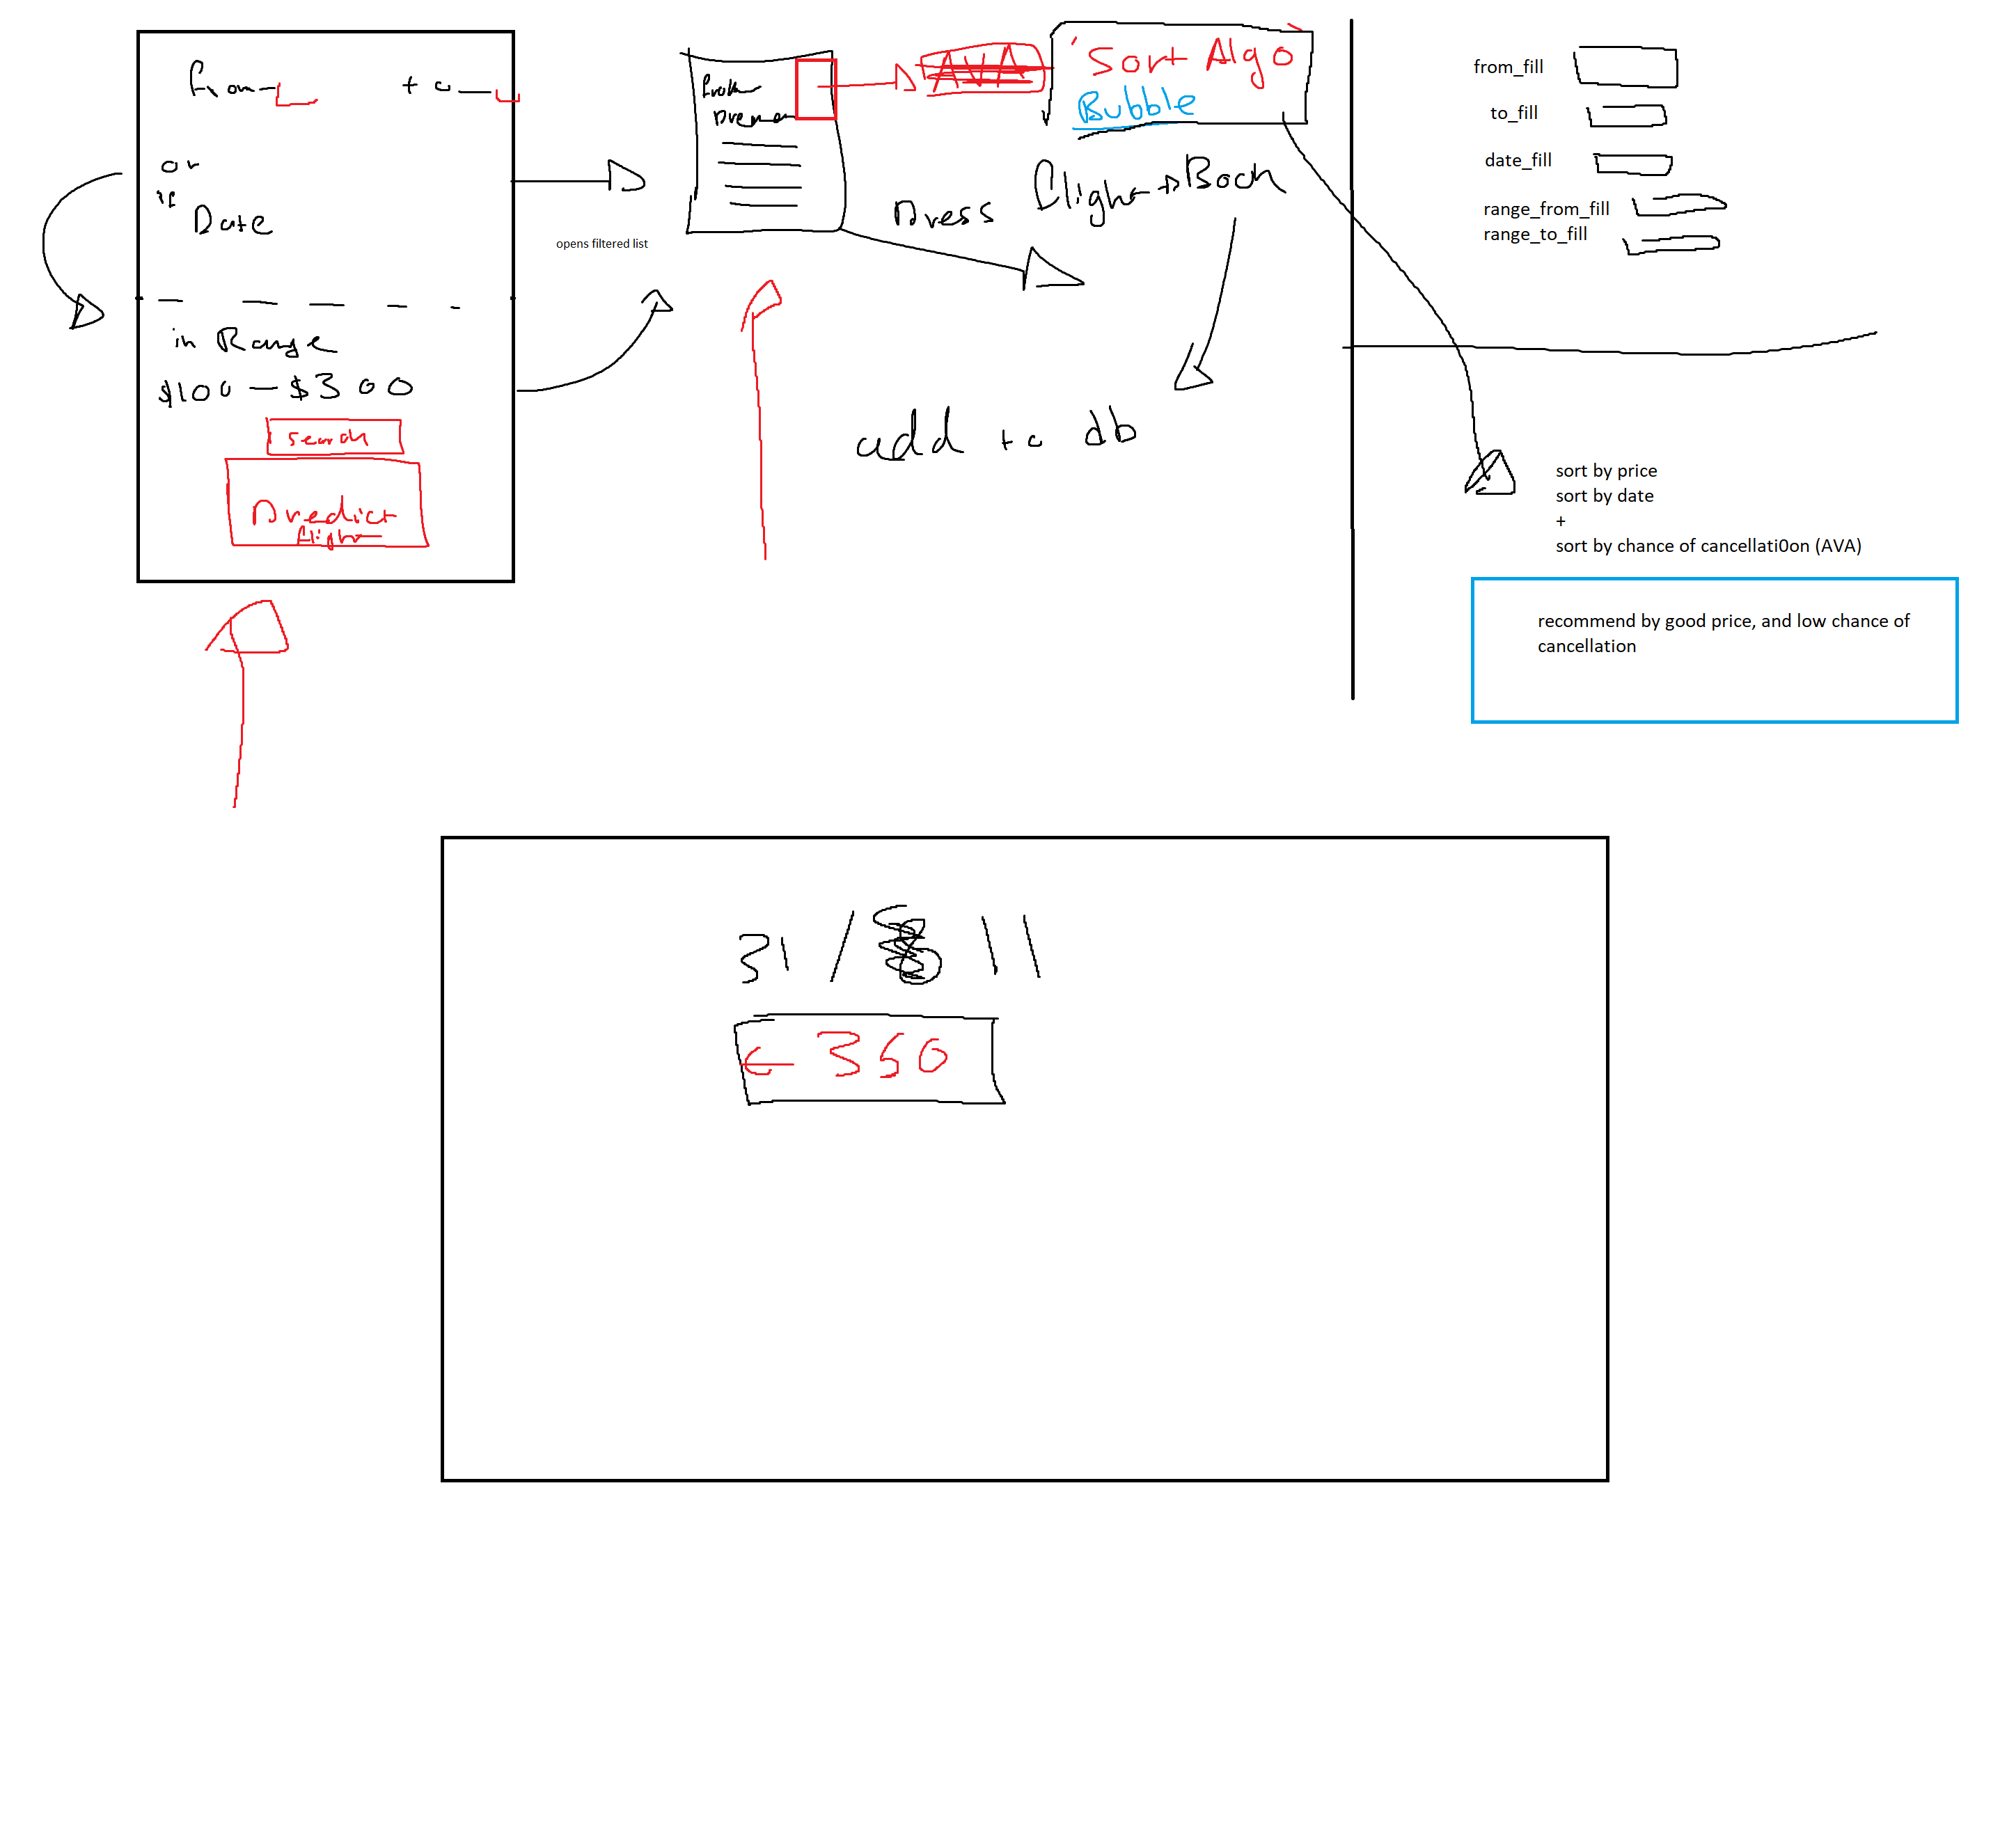 from to
or
if
Date
in Range
$100 – $300
search
Predict
flight
opens filtered list
from
AVA
Sort Algo
Bubble
Press flight → Book
add to db
from_fill
to_fill
date_fill
range_from_fill
range_to_fill
sort by price
sort by date
+
sort by chance of cancellati0on (AVA)
recommend by good price, and low chance of
cancellation
31 / 11
€ 350